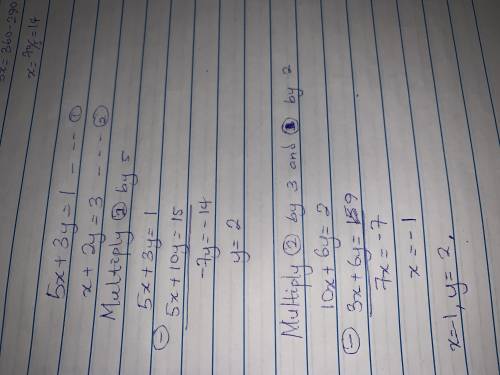 5x = 360 - 290
x = 70/5 = 14
5x + 3y = 1 - - - ①
x + 2y = 3 - - - ②
Multiply ② by 5
5x + 3y = 1
⊖ 5x + 10y = 15
-7y = -14
y = 2
Multiply ② by 3 and ① by 2
10x + 6y = 2
⊖ 3x + 6y = 9
7x = -7
x = -1
x = -1, y = 2,